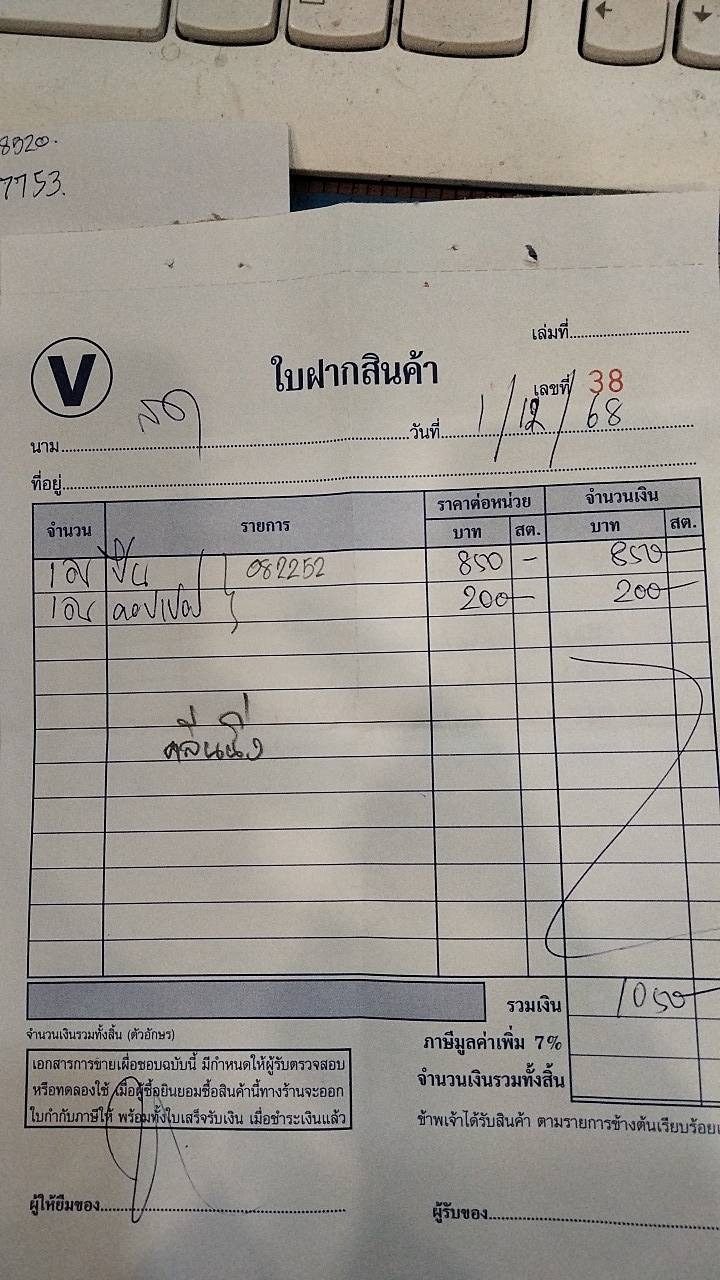 8520.
7753.
เล่มที่
V
ใบฝากสินค้า
เลขที่ 38
นาม วันที่ 1/12/68
ที่อยู่
จำนวน รายการ ราคาต่อหน่วย จำนวนเงิน
บาท สต. บาท สต.
082252 850 - 850 -
200 - 200 -
คลีนนิ่ง
รวมเงิน 1050 -
จำนวนเงินรวมทั้งสิ้น (ตัวอักษร)
ภาษีมูลค่าเพิ่ม 7%
จำนวนเงินรวมทั้งสิ้น
เอกสารการขายเผื่อชอบฉบับนี้ มีกำหนดให้ผู้รับตรวจสอบ
หรือทดลองใช้ เมื่อผู้ซื้อยินยอมซื้อสินค้านี้ทางร้านจะออก
ใบกำกับภาษีให้ พร้อมทั้งใบเสร็จรับเงิน เมื่อชำระเงินแล้ว
ข้าพเจ้าได้รับสินค้า ตามรายการข้างต้นเรียบร้อย
ผู้ให้ยืมของ
ผู้รับของ